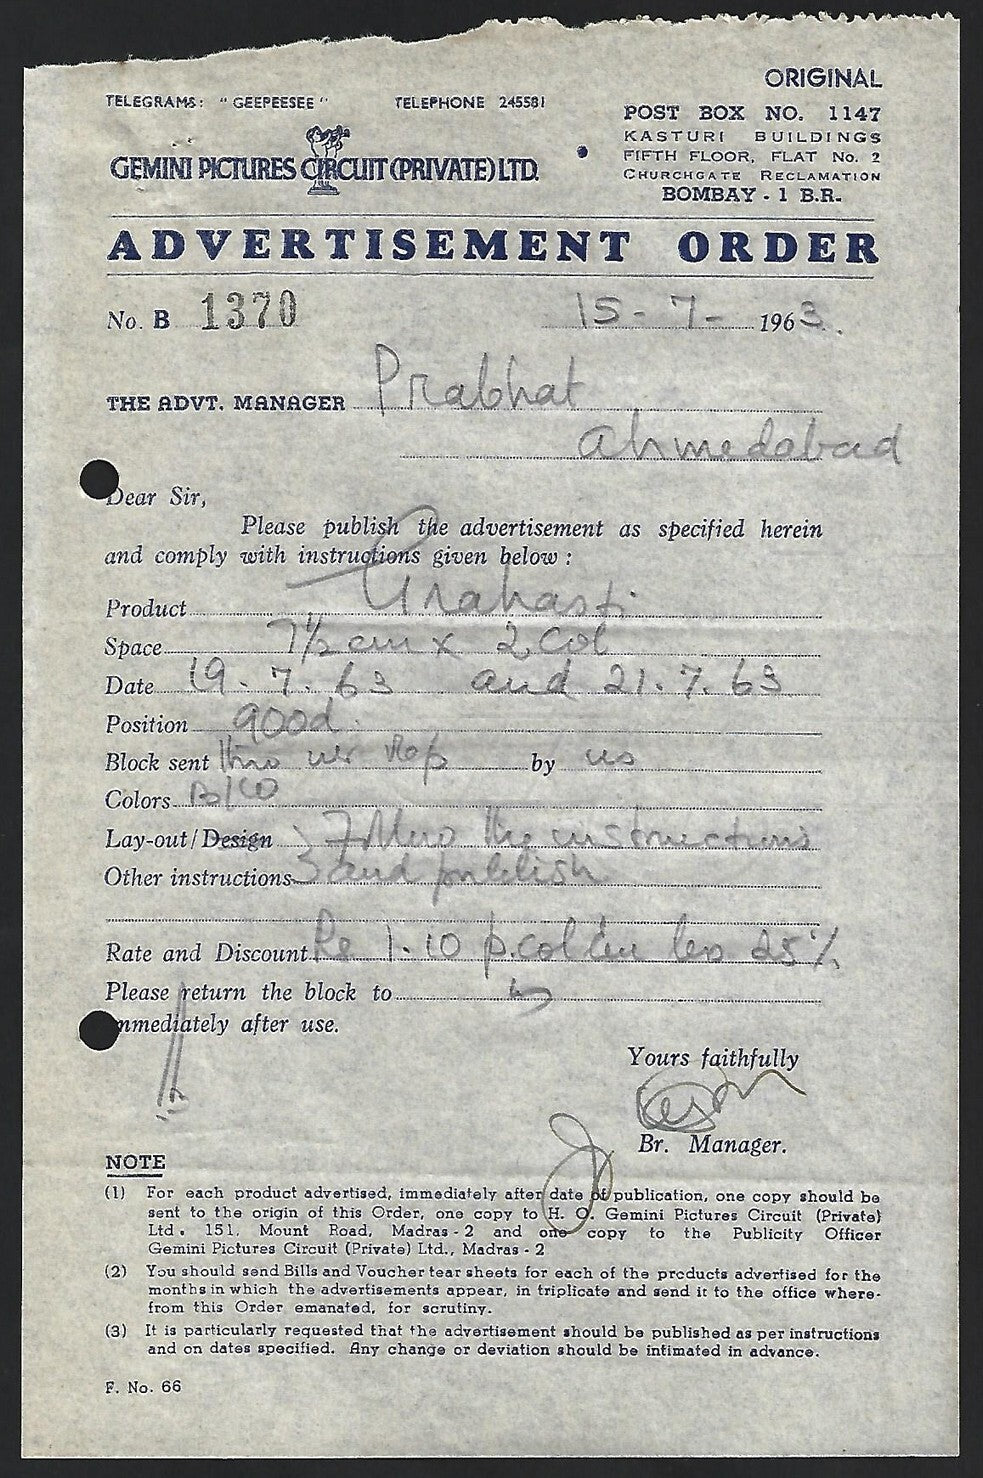 ORIGINAL
TELEGRAMS: "GEEPEESEE" TELEPHONE 245581
POST BOX NO. 1147
KASTURI BUILDINGS
FIFTH FLOOR, FLAT No. 2
CHURCHGATE RECLAMATION
BOMBAY - 1 B.R.
GEMINI PICTURES CIRCUIT (PRIVATE) LTD.
ADVERTISEMENT ORDER
No. B 1370 15-7-1963.
THE ADVT. MANAGER Prabhat
Ahmedabad
Dear Sir,
Please publish the advertisement as specified herein
and comply with instructions given below:
Product Grahasti
Space 7½ cm x 2 Col
Date 19.7.63 and 21.7.63
Position good.
Block sent thro our Rep by us
Colors B/W
Lay-out/Design Follow the instructions
Other instructions and publish
Rate and Discount Re 1.10 p.col cm less 25%
Please return the block to
immediately after use.
Yours faithfully
Br. Manager.
NOTE
(1) For each product advertised, immediately after date of publication, one copy should be
sent to the origin of this Order, one copy to H. O. Gemini Pictures Circuit (Private)
Ltd. 151, Mount Road, Madras-2 and one copy to the Publicity Officer
Gemini Pictures Circuit (Private) Ltd., Madras-2
(2) You should send Bills and Voucher tear sheets for each of the products advertised for the
months in which the advertisements appear, in triplicate and send it to the office where-
from this Order emanated, for scrutiny.
(3) It is particularly requested that the advertisement should be published as per instructions
and on dates specified. Any change or deviation should be intimated in advance.
F. No. 66